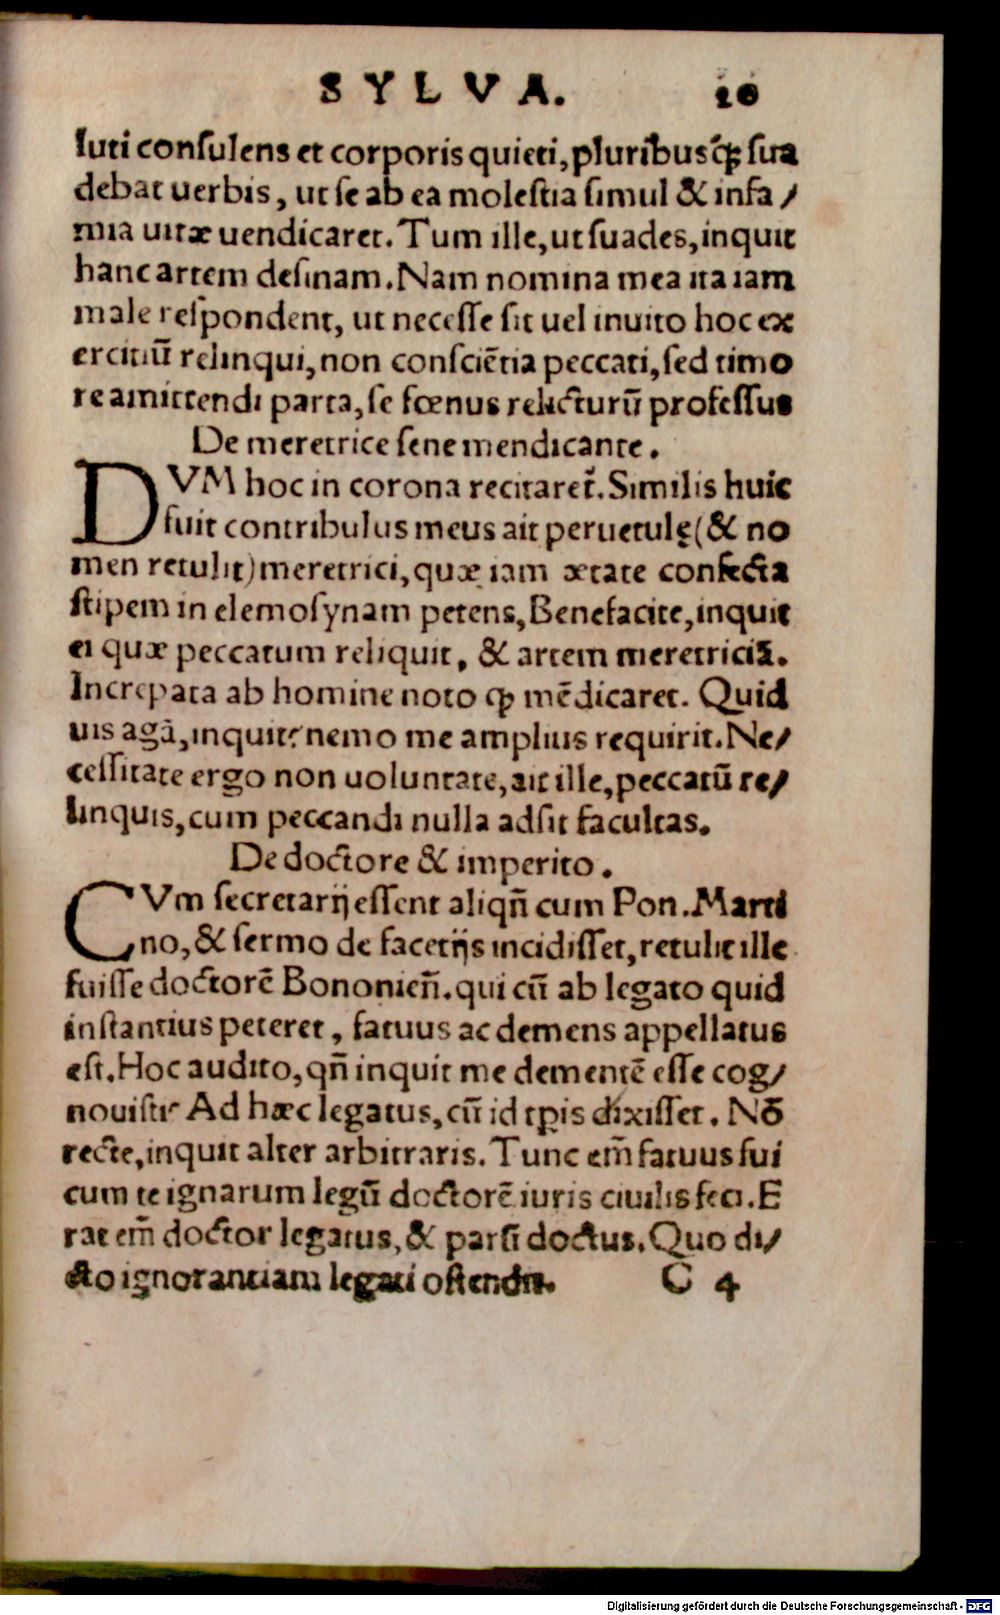 SYLVA. 20
luti consulens et corporis quieti, pluribusq̃ꝫ sua
debat uerbis, ut se ab ea molestia simul & infa/
mia uitæ uendicaret. Tum ille, ut suades, inquit
hanc artem desinam. Nam nomina mea ita iam
male respondent, ut necesse sit uel inuito hoc ex
ercitiũ relinqui, non consciẽtia peccati, sed timo
re amittendi parta, se fœnus relicturũ professus
De meretrice sene mendicante.
DVM hoc in corona recitaret̃. Similis huic
fuit contribulus meus ait peruetulę (& no
men retulit) meretrici, quæ iam ætate confecta
stipem in elemosynam petens, Benefacite, inquit
ei quæ peccatum reliquit, & artem meretriciã.
Increpata ab homine noto ꝙ mẽdicaret. Quid
uis agã, inquit? nemo me amplius requirit. Ne/
cessitate ergo non uoluntate, ait ille, peccatũ re/
linquis, cum peccandi nulla adsit facultas.
De doctore & imperito.
CVm secretarij essent aliqñ cum Pon. Marti
no, & sermo de facetijs incidisset, retulit ille
fuisse doctorẽ Bononieñ. qui cũ ab legato quid
instantius peteret, fatuus ac demens appellatus
est. Hoc audito, qñ inquit me dementẽ esse cog/
nouisti? Ad hæc legatus, cũ id tp̃is dixisset. Nõ
recte, inquit alter arbitraris. Tunc em̃ fatuus fui
cum te ignarum legũ doctorẽ iuris ciuilis feci. E
rat em̃ doctor legatus, & parũ doctus. Quo di/
cto ignorantiam legati ostendit. C 4
Digitalisierung gefördert durch die Deutsche Forschungsgemeinschaft - DFG